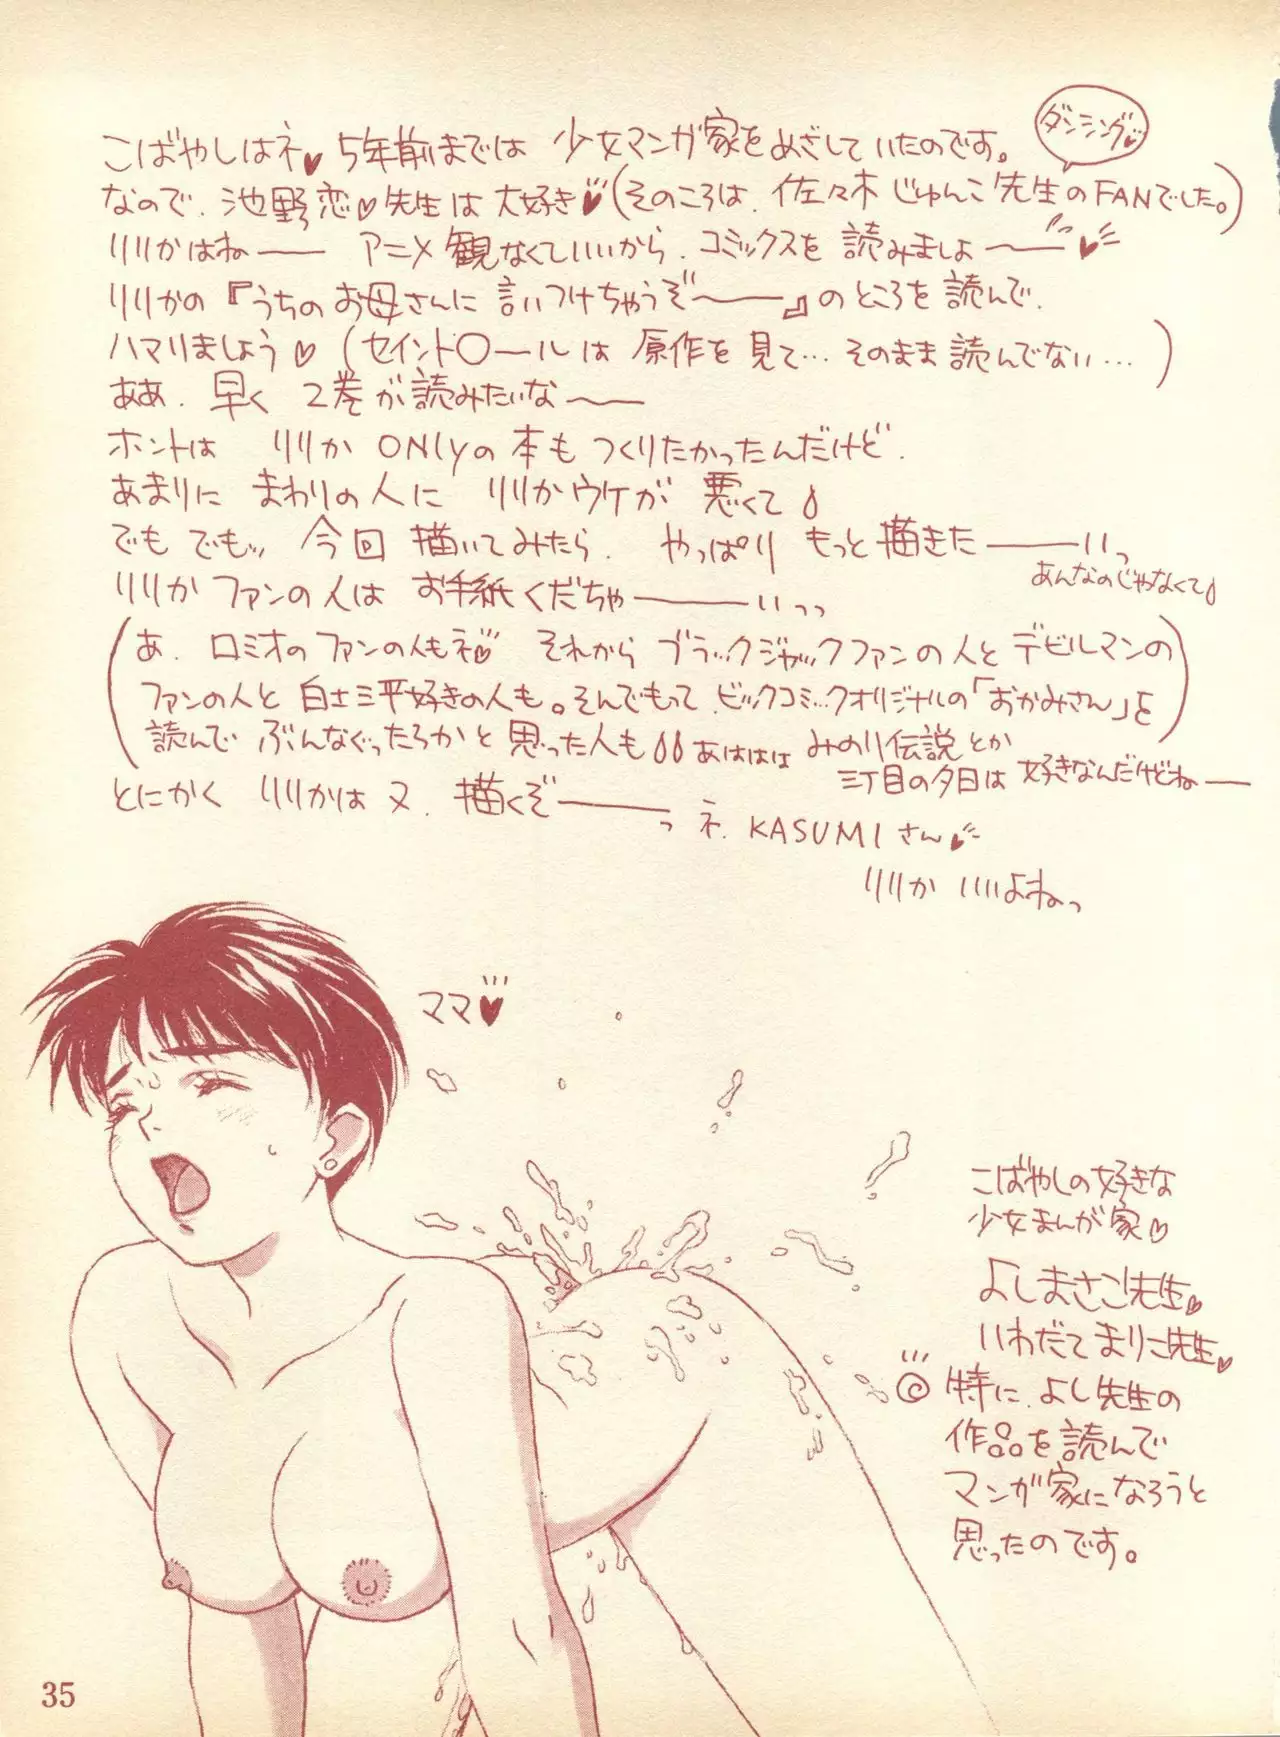 こばやしはネ♥ 5年前までは 少女マンガ家をめざしていたのです。
ダンシング♥
なので、池野恋♡先生は大好き♥(そのころは、佐々木じゅんこ先生のFANでした。)
リリかはねー アニメ観なくていいから、コミックスを読みましょー♥
リリかの『うちのお母さんに言いつけちゃうぞー』のところを読んで、
ハマりましょう♡(セイント〇ールは原作を見て…そのまま読んでない…)
ああ、早く2巻が読みたいなー
ホントは リリかONlyの本もつくりたかったんだけど、
あまりにまわりの人に リリかウケが悪くて
でもでもッ 今回描いてみたら、やっぱり もっと描きたーいっ
あんなのじゃなくて
リリかファンの人は お手紙くだちゃーいっっ
(あ、ロミオのファンの人もネ♡ それから ブラックジャックファンの人とデビルマンの
ファンの人と 白土三平好きの人も。そんでもって、ビックコミックオリジナルの「おかみさん」を
読んで ぶんなぐったろかと思った人も あははは みのり伝説とか
三丁目の夕日は 好きなんだけどねー)
とにかく リリかは又、描くぞーっ ネ、KASUMIさん♥
リリか いいよねっ
ママ♥
こばやしの好きな
少女まんが家♡
よしまさこ先生♥
いわだてまりこ先生♥
特に、よし先生の
作品を読んで
マンガ家になろうと
思ったのです。
35